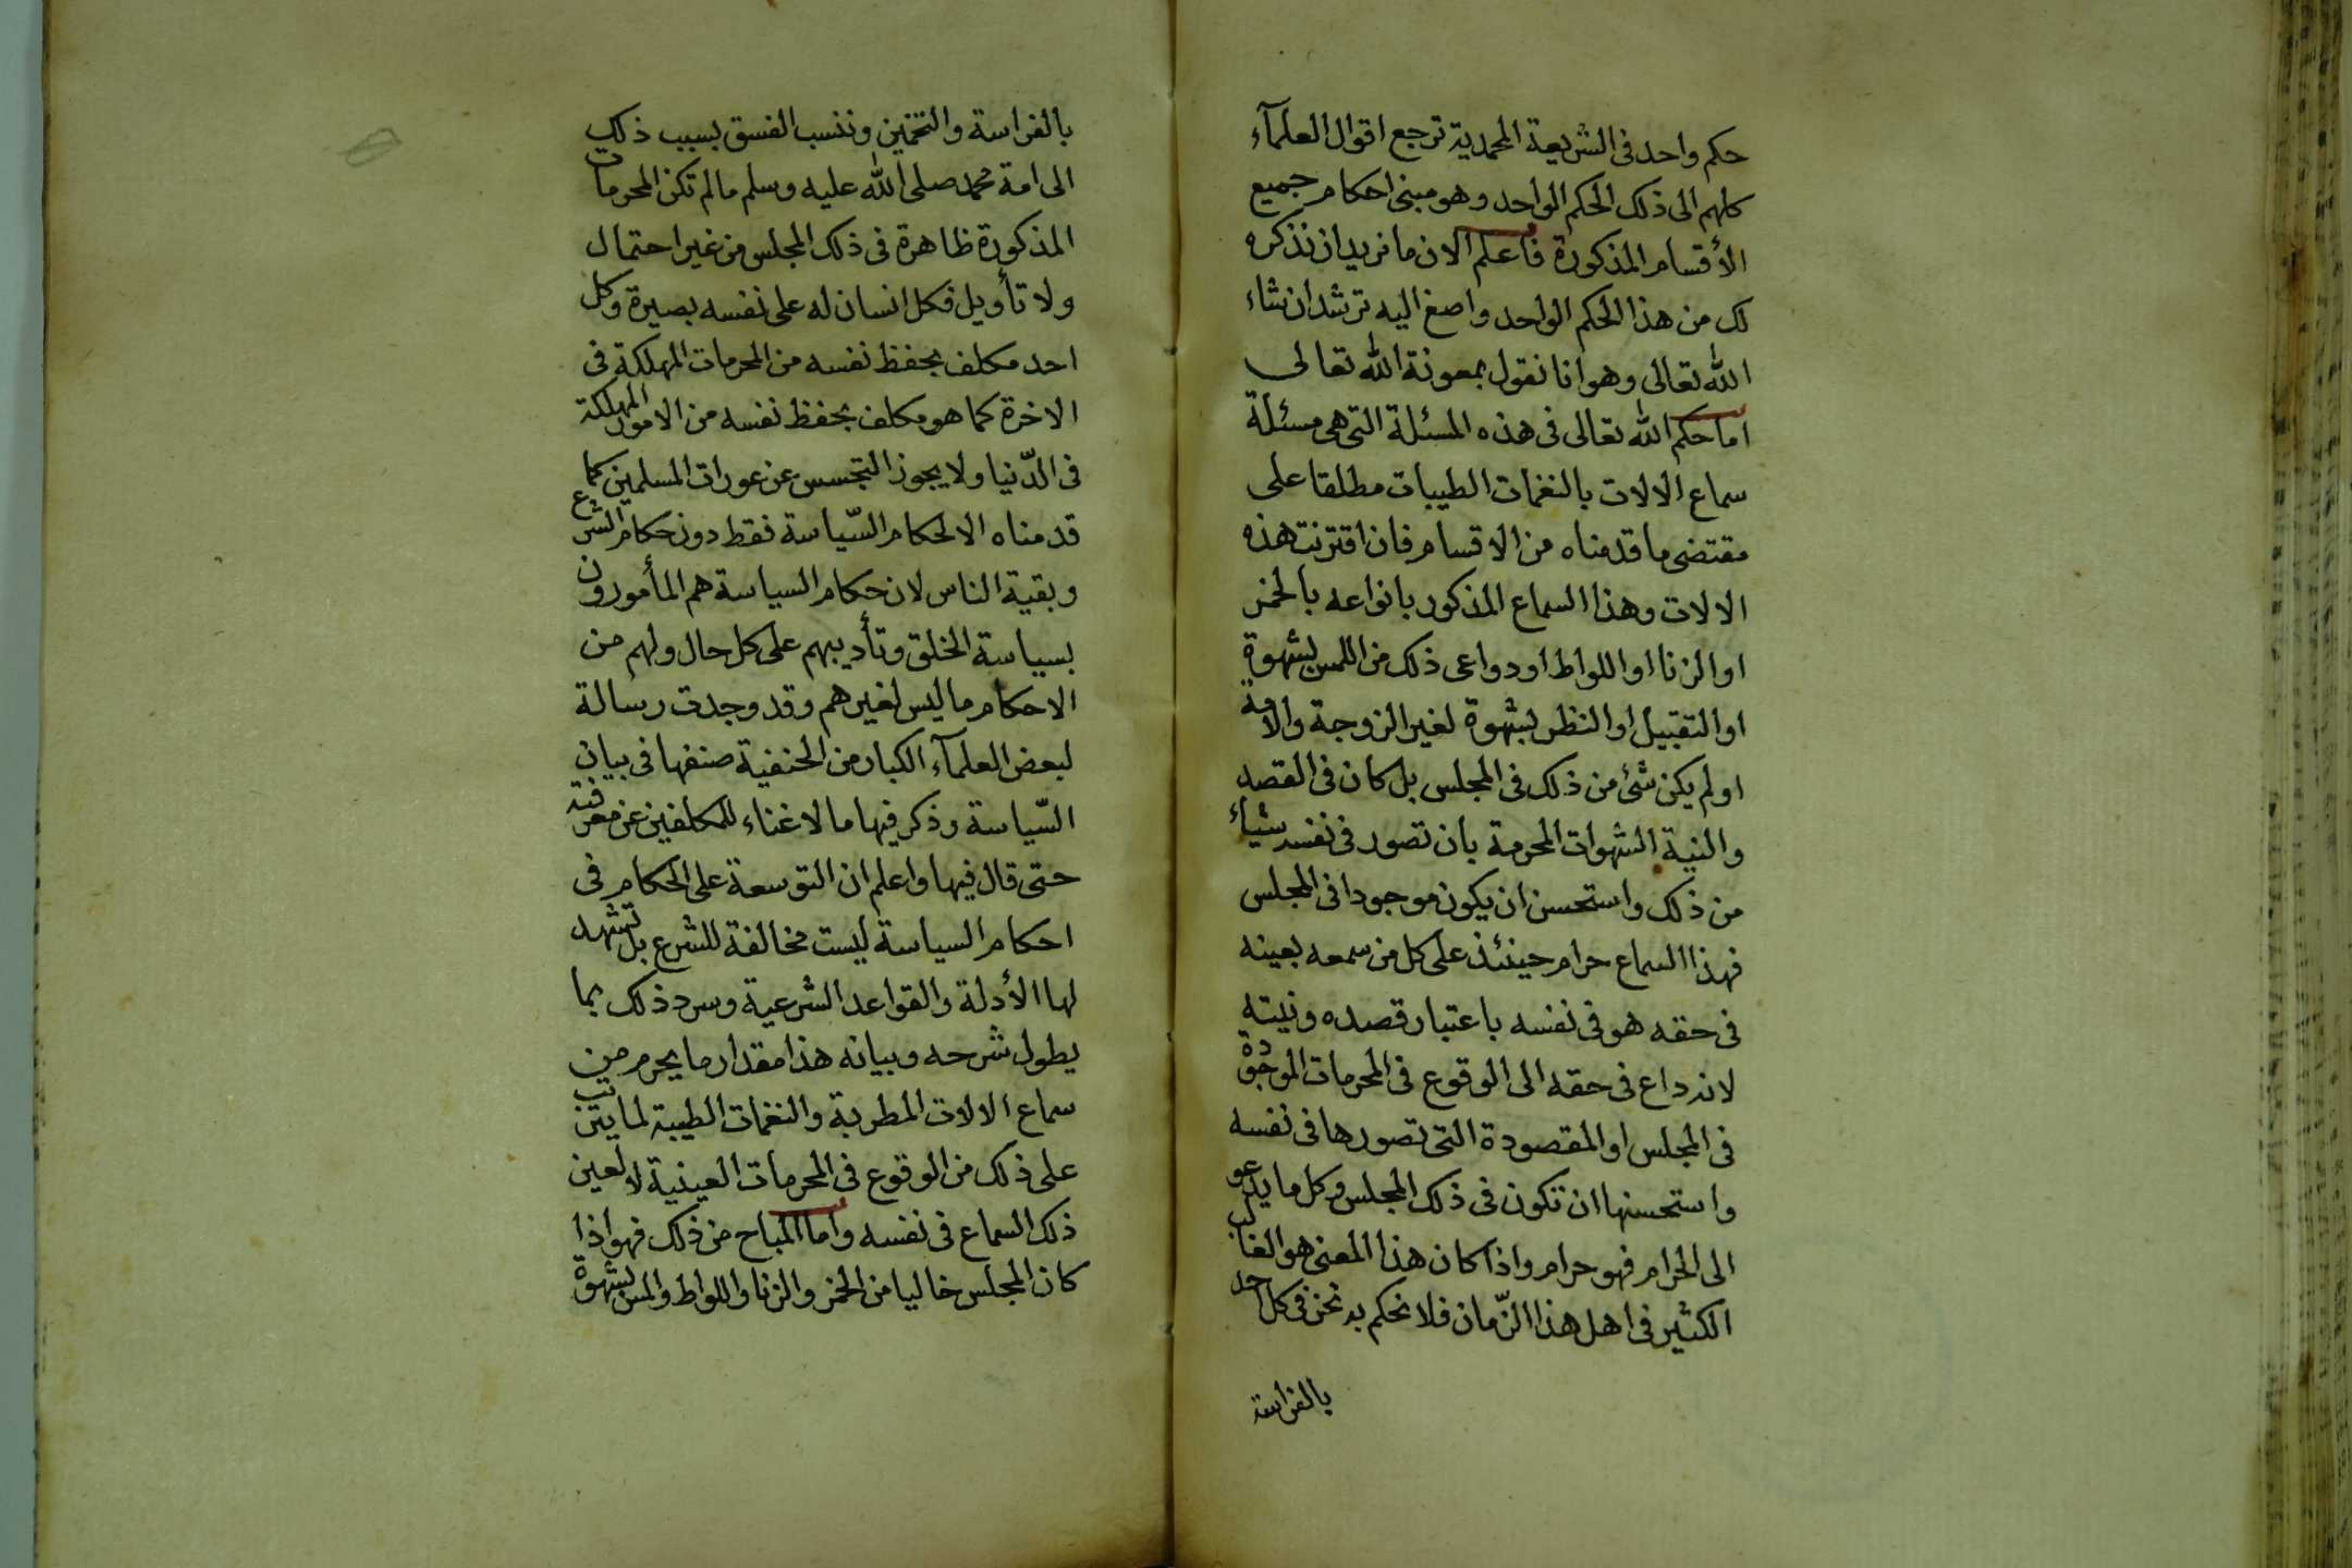 حكم واحد فى الشريعة المحمدية ترجع اقوال العلمآء
كلهم الى ذلك الحكم الواحد وهو مبنى احكام جميع
الأقسام المذكورة فاعلم الان ما نريد ان نذكره
لك من هذا الحكم الواحد واصغ اليه ترشد ان شاء
الله تعالى وهو انا نقول بمعونة الله تعالى
اما حكم الله تعالى فى هذه المسئلة التى هى مسئلة
سماع الالات بالنغمات الطيبات مطلقا على
مقتضى ما قدمناه من الاقسام فان اقترنت هذه
الالات وهذا السماع المذكور بانواعه بالخمر
او الزنا او اللواط او دواعى ذلك من اللمس بشهوة
او التقبيل او النظر بشهوة لغير الزوجة والامة
او لم يكن شئ من ذلك فى المجلس بل كان فى القصد
والنية الشهوات المحرمة بان تصور فى نفسه شياء
من ذلك واستحسن ان يكون موجودا فى المجلس
فهذا السماع حرام حينئذ على كل من سمعه بعينه
فى حقه هو فى نفسه باعتبار قصده ونيته
لانه داع فى حقه الى الوقوع فى المحرمات الموجودة
فى المجلس او المقصودة التى تصورها فى نفسه
واستحسنها ان تكون فى ذلك المجلس وكل ما يدعو
الى الحرام فهو حرام واذا كان هذا المعنى هو الغالب
الكثير فى اهل هذا الزّمان فلا نحكم به نحن فى كل احد
بالفراسة
بالفراسة والتخمين وننسب الفسق بسبب ذلك
الى امة محمد صلى الله عليه وسلم ما لم تكن المحرمات
المذكورة ظاهرة فى ذلك المجلس من غير احتمال
ولا تأويل فكل انسان له على نفسه بصيرة وكل
احد مكلف بحفظ نفسه من المحرمات المهلكة فى
الاخرة كما هو مكلف بحفظ نفسه من الامور المهلكة
فى الدّنيا ولا يجوز التجسس عن عورات المسلمين كما
قدمناه الا لحكام السّياسة فقط دون حكام الشرع
وبقية الناس لان حكام السياسة هم المأمورون
بسياسة الخلق وتأديبهم على كل حال ولهم من
الاحكام ما ليس لغيرهم وقد وجدت رسالة
لبعض العلمآء الكبار من الحنفية صنفها فى بيان
السّياسة وذكر فيها ما لا غناء للمكلفين عن معرفته
حتى قال فيها واعلم ان التوسعة على الحكام فى
احكام السياسة ليست مخالفة للشرع بل تشهد
لها الأدلة والقواعد الشرعية وسرد ذلك بما
يطول شرحه وبيانه هذا مقدار ما يحرم من
سماع الالات المطربة والنغمات الطيبة لما يترتب
على ذلك من الوقوع فى المحرمات العينية لا لعين
ذلك السماع فى نفسه واما المباح من ذلك فهو اذا
كان المجلس خاليا من الخمر والزنا واللواط والمس بشهوة